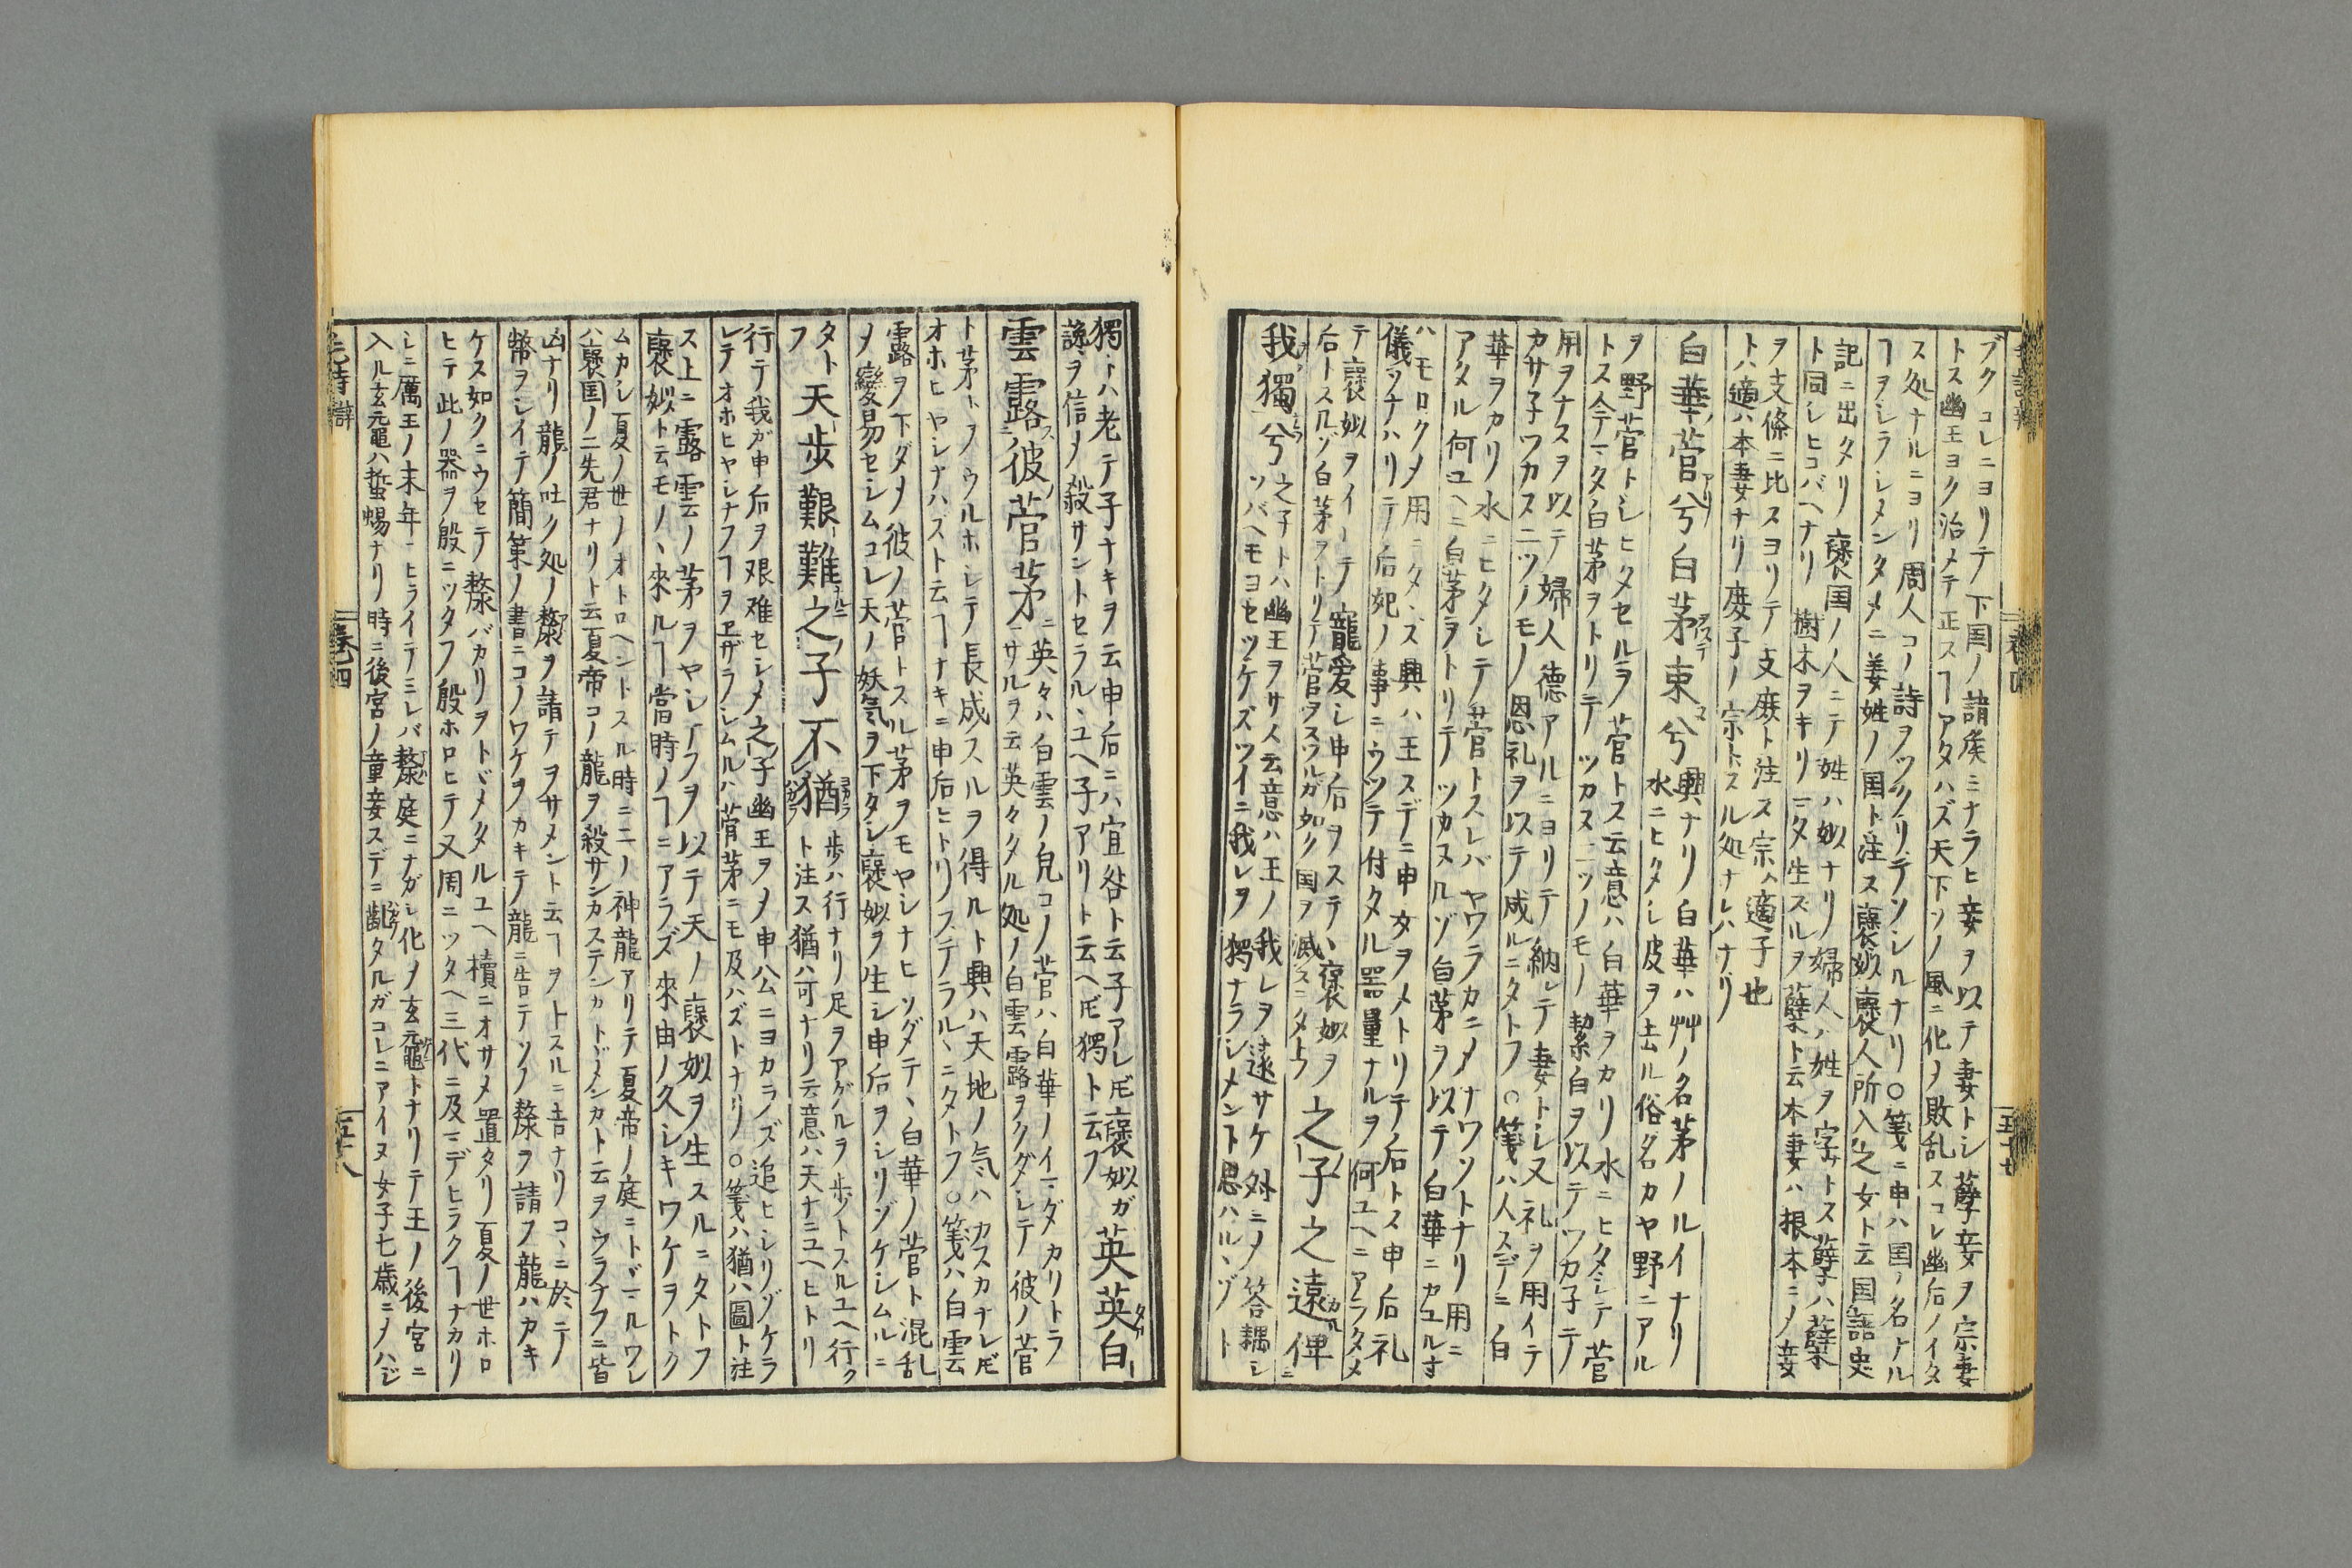 ブクコレニヨリテ下国ノ諸矦ニナラヒ妾ヲ以テ妻トシ孽妾ヲ宗妻
トス幽王ヨク治メテ正スヿアタハズ天下ソノ風ニ化メ敗乱スコレ幽后ノイタ
ス処ナルニヨリ周人コノ詩ヲツクリテソシルナリ○箋ニ申ハ国ノ名ナル
ヿヲシラシメンタメニ姜姓ノ国ト注ス襃姒襃人所入之女ト云国語史
記ニ出タリ襃国ノ人ニテ姓ハ姒ナリ婦人ハ姓ヲ字トス孽ハ蘖
ト同シヒコバヘナリ樹木ヲキリ一タ生ズルヲ蘖ト云本妻ハ根本ニメ妾
ヲ支條ニ比スヨリテ支庻ト注ス宗ハ適子也
トハ適ハ本妻ナリ庻子ノ宗トスル処ナレハナリ
白華菅兮白茅束兮
興ナリ白華ハ艸ノ名茅ノルイナリ
水ニヒタシ皮ヲ去ル俗名カヤ野ニアル
ヲ野菅トシヒタセルヲ菅トス云意ハ白華ヲカリ水ニヒタシテ菅
トス今一タ白茅ヲトリテツカヌ二ツノモノ潔白ヲ以テワカ子テ
用ヲナスヲ以テ婦人德アルニヨリテ納レテ妻トシ又礼ヲ用イテ
カサ子ワカス二ツノモノ恩礼ヲ以テ成ルニタトフ○箋ハ人スデニ白
華ヲカリ水ニヒタシテ菅トスレバヤワラカニメナワソトナリ用ニ
アタル何ユヘニ白茅ヲトリテツカヌルゾ白茅ヲ以テ白華ニカユルナ
ハモロクメ用ニタヽズ興ハ王スデニ申女ヲメトリテ后トス申后礼
儀ツナハリテ后妃ノ事ニウツテ付タル器量ナルヲ何ユヘニアラタメ
テ襃姒ヲイレテ寵愛シ申后ヲステヽ襃姒ヲ
后トスルゾ白茅ヲトリテ菅ヲスツルガ如ク国ヲ滅スニタトフ
之子之遠俾
我獨兮
之子トハ幽王ヲサス云意ハ王ノ我レヲ遠サケ外ニメ答耦シ
ソバヘモヨセツケズツイニ我レヲ獨ナラシメント思ハルヽゾト
獨トハ老テ子ナキヲ云申后ニハ宜咎ト云子アレドモ襃姒ガ
譖ヲ信メ殺サントセラルヽユヘ子アリト云ヘドモ獨ト云フ
英英白
雲露彼菅茅
英々ハ白雲ノ皃コノ菅ハ白華ノイマダカリトラ
サルヲ云英々タル処ノ白雲露ヲクダシテ彼ノ菅
ト茅トヲウルホシテ長成スルヲ得ルト興ハ天地ノ気ハカスカナレドモ
オホヒヤシナハズト云ヿナキニ申后ヒトリステラルヽニタトフ○箋ハ白雲
露ヲ下ダメ彼ノ菅トスル茅ヲモヤシナヒソダテヽ白華ノ菅ト混乱
メ變易セシムコレ天ノ妖気ヲ下タシ襃姒ヲ生シ申后ヲシリゾケシムルニ
タト
フ
天步艱難之子不猶
步ハ行ナリ足ヲアグルヲ步トスルユヘ行ク
ト注ス猶ハ可ナリ云意ハ天ナニユヘヒトリ
行テ我ガ申后ヲ艰难セシメ之子幽王ヲメ申公ニヨカラズ追ヒシリゾケラ
レテオホヒヤシナフヿヲヱザラシムルハ菅茅ニモ及ハズトナリ○箋ハ猶ハ圖ト注
ス上ニ露雲ノ茅ヲヤシナフヲ以テ天ノ襃姒ヲ生スルニタトフ
襃姒ト云モノヽ來ルヿ當時ノヿニアラズ來由ノ久シキワケヲトク
ムカシ夏ノ世ノオトロヘントスル時ニ二ノ神龍アリテ夏帝ノ庭ニトヾマルワレ
ハ襃国ノ二先君ナリト云夏帝コノ龍ヲ殺サンカステンカトヾメンカト云ヲウラナフニ皆
凶ナリ龍ノ吐ク処ノ漦ヲ請テヲサメント云ヿヲトスルニ吉ナリコヽニ於テ
幣ヲシイテ簡策ノ書ニコノワケヲカキテ龍ニ告テソノ漦ヲ請フ龍ハカキ
ケス如クニウセテ漦バカリヲトヾメタルユヘ櫝ニオサメ置タリ夏ノ世ホロ
ヒテ此ノ器ヲ殷ニツタフ殷ホロヒテ又周ニツタヘ三代ニ及マデヒラクヿナカリ
シニ厲王ノ末年ニヒライテミレバ漦庭ニナガレ化メ玄黿トナリテ王ノ後宮ニ
入ル玄黿ハ蜇蜴ナリ時ニ後宮ノ童妾スデニ齓タルガコレニアイヌ女子七歳ニメハジ
毛詩辯
卷四
五十八